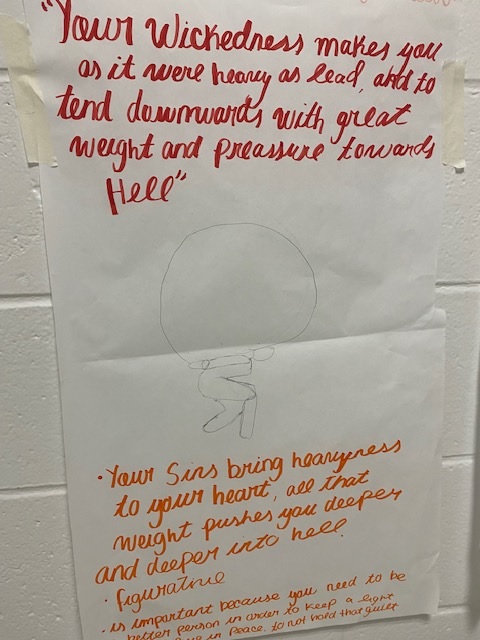 "Your Wickedness makes you
as it were heavy as lead, and to
tend downwards with great
weight and preassure towards
Hell"
• Your Sins bring heavyness
to your heart, all that
weight pushes you deeper
and deeper into hell.
• figurative
• is important because you need to be
better person in order to keep a light
in peace. to not hold that guilt